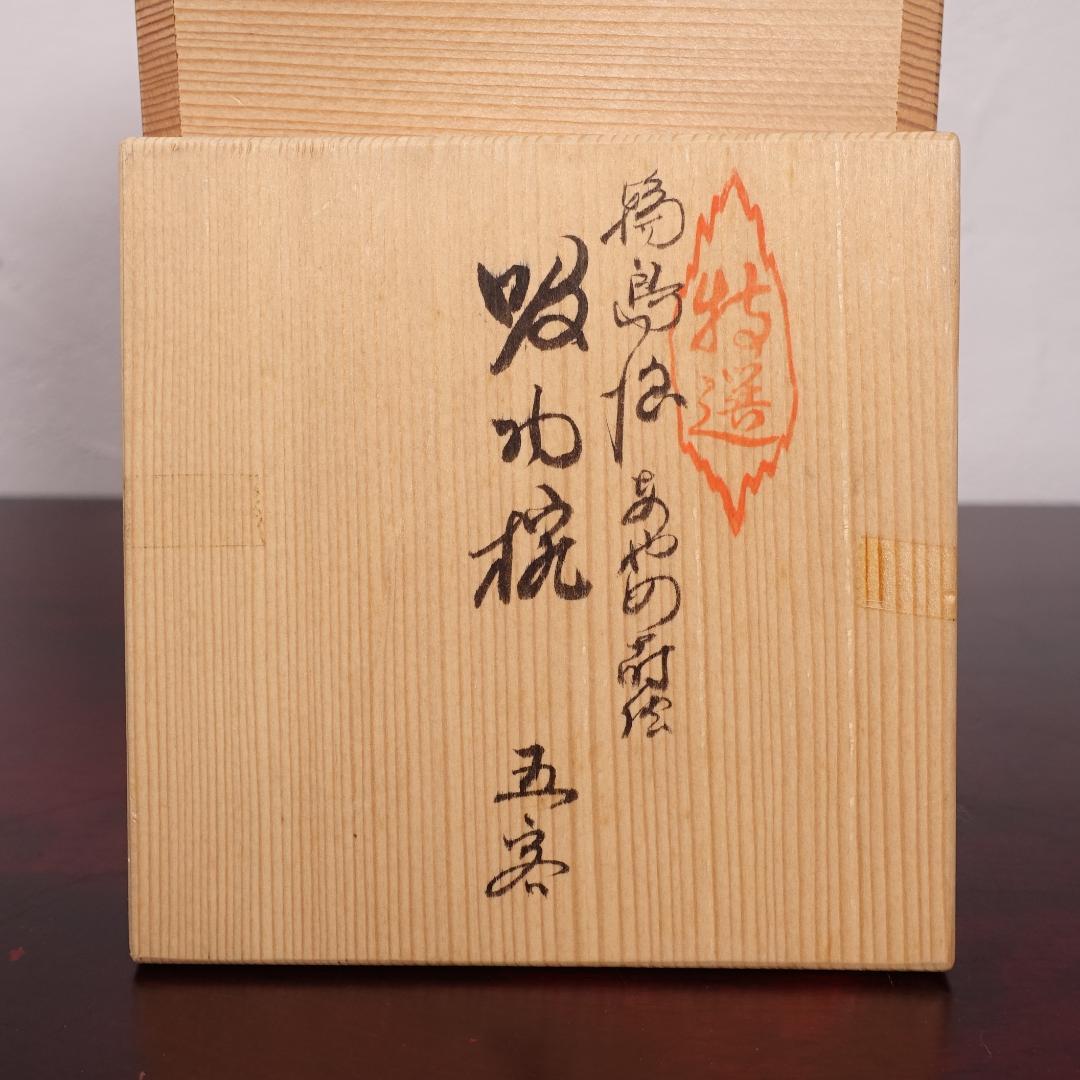 特選
輪島塗 あやめ蒔絵
吸物椀 五客